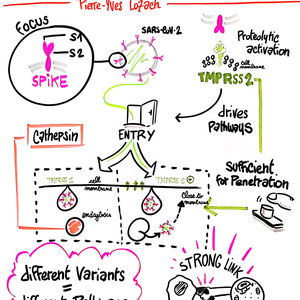 Pierre-Yves Lozach
FOCUS
S1
S2
SPIKE
SARS-CoV-2
Proteolytic
activation
cell
membrane
TMPRSS2
ENTRY
drives
Pathways
Cathepsin
TMPRSS 2 -
cell
membrane
TMPRSS 2 +
Close to
membrane
endocytosis
Sufficient
for Penetration
different Variants
=
STRONG LINK